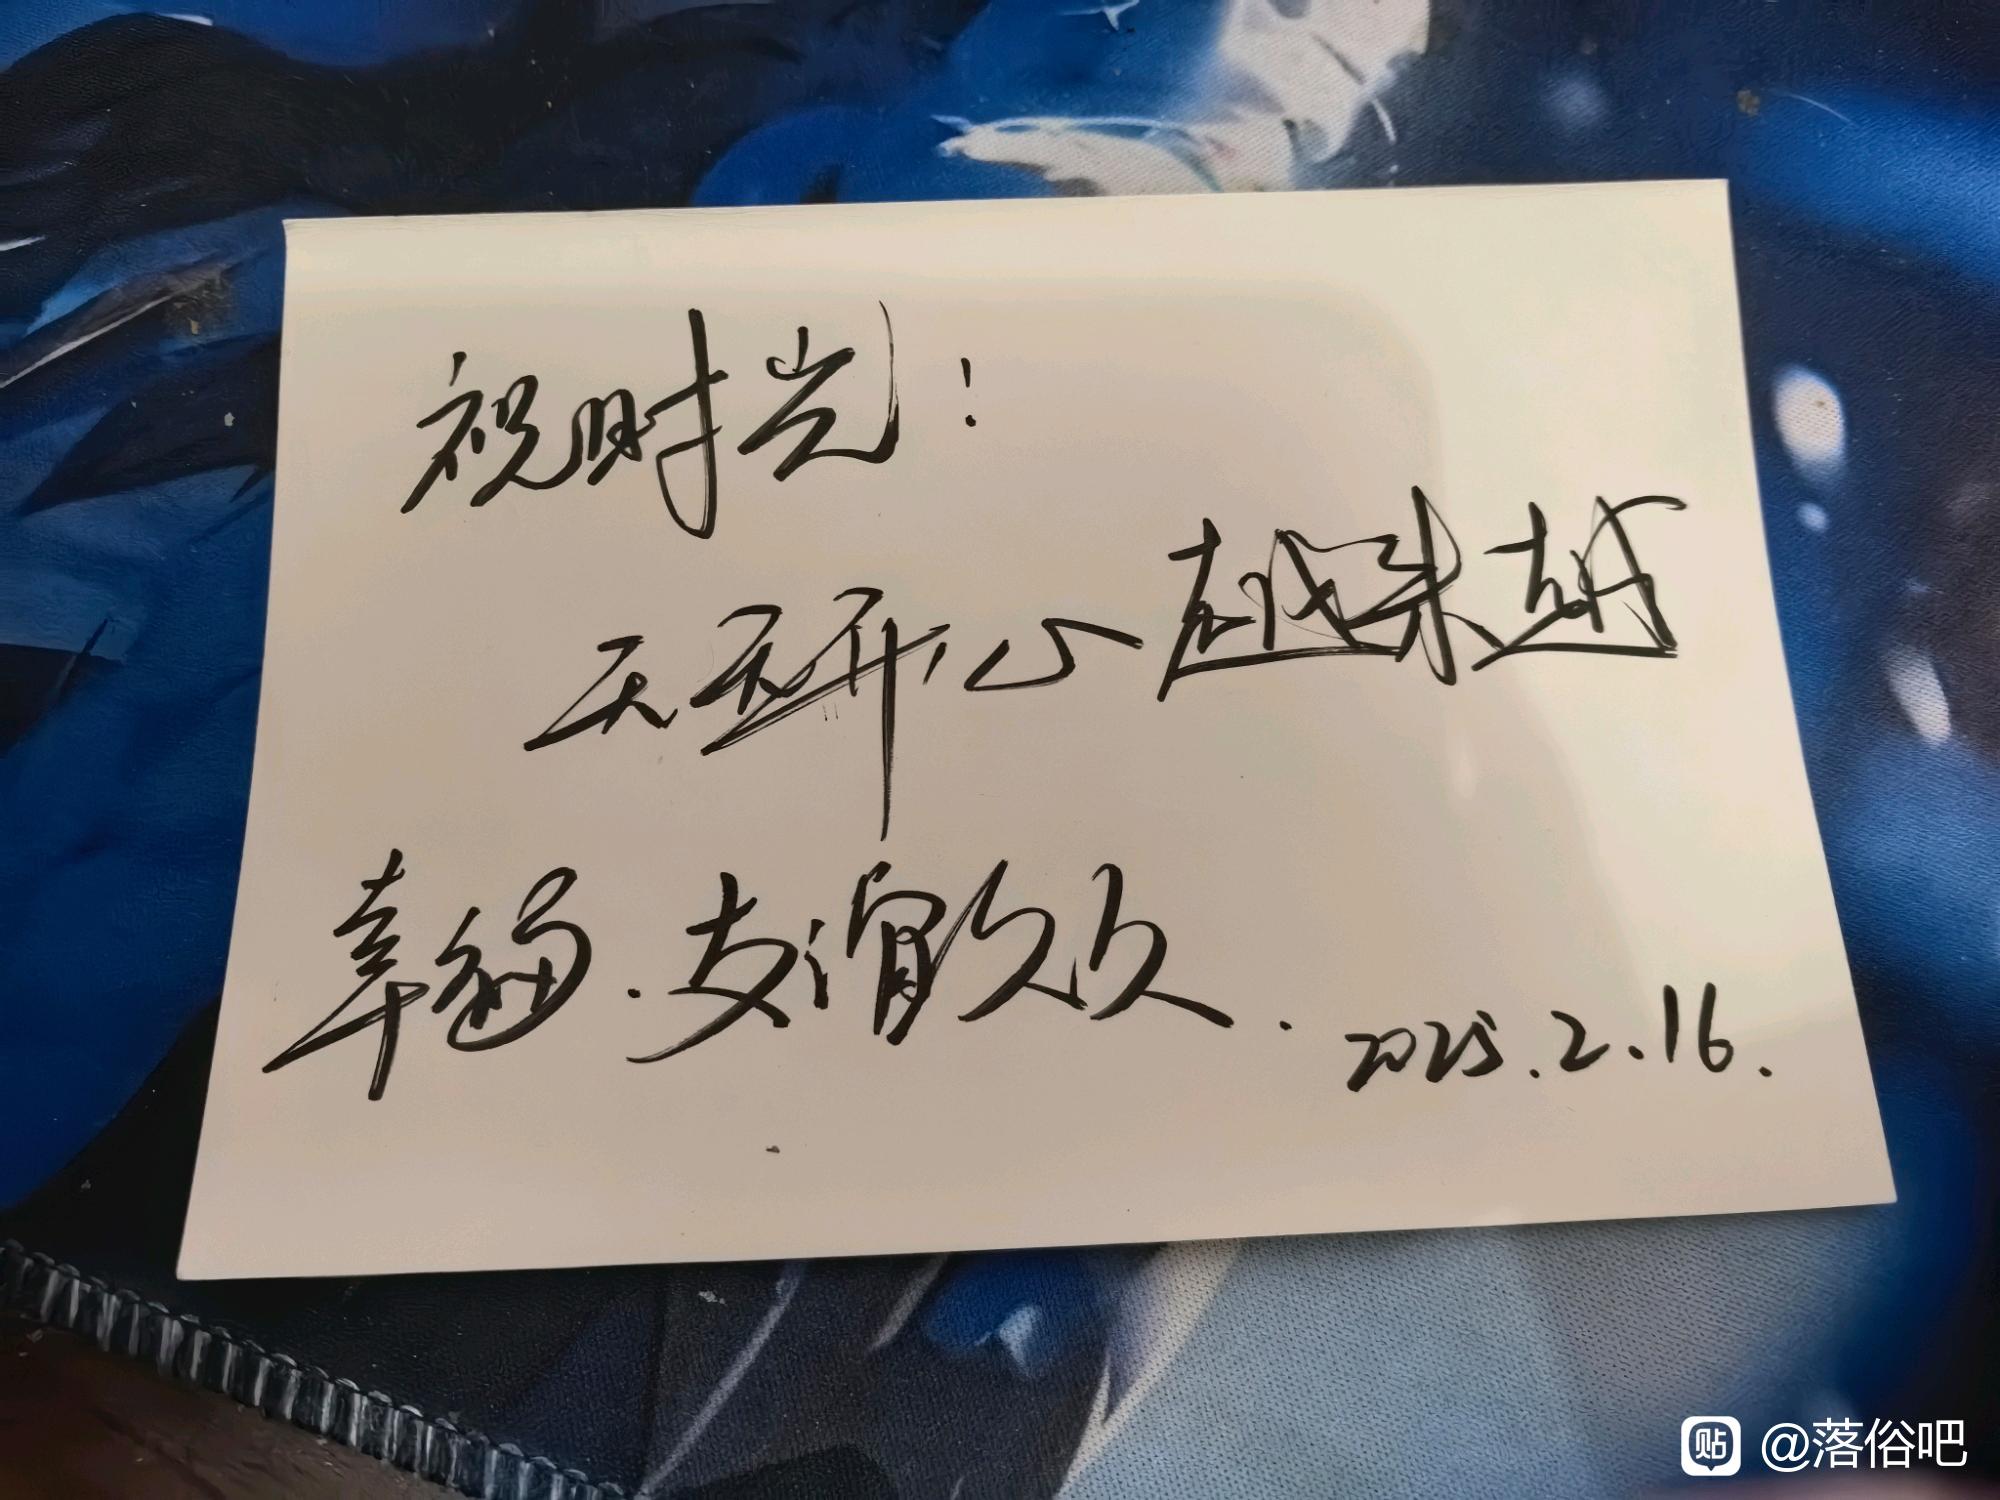 祝时光！
天天开心越来越
幸福.友谊
久.
2025.2.16.
贴 @落俗吧